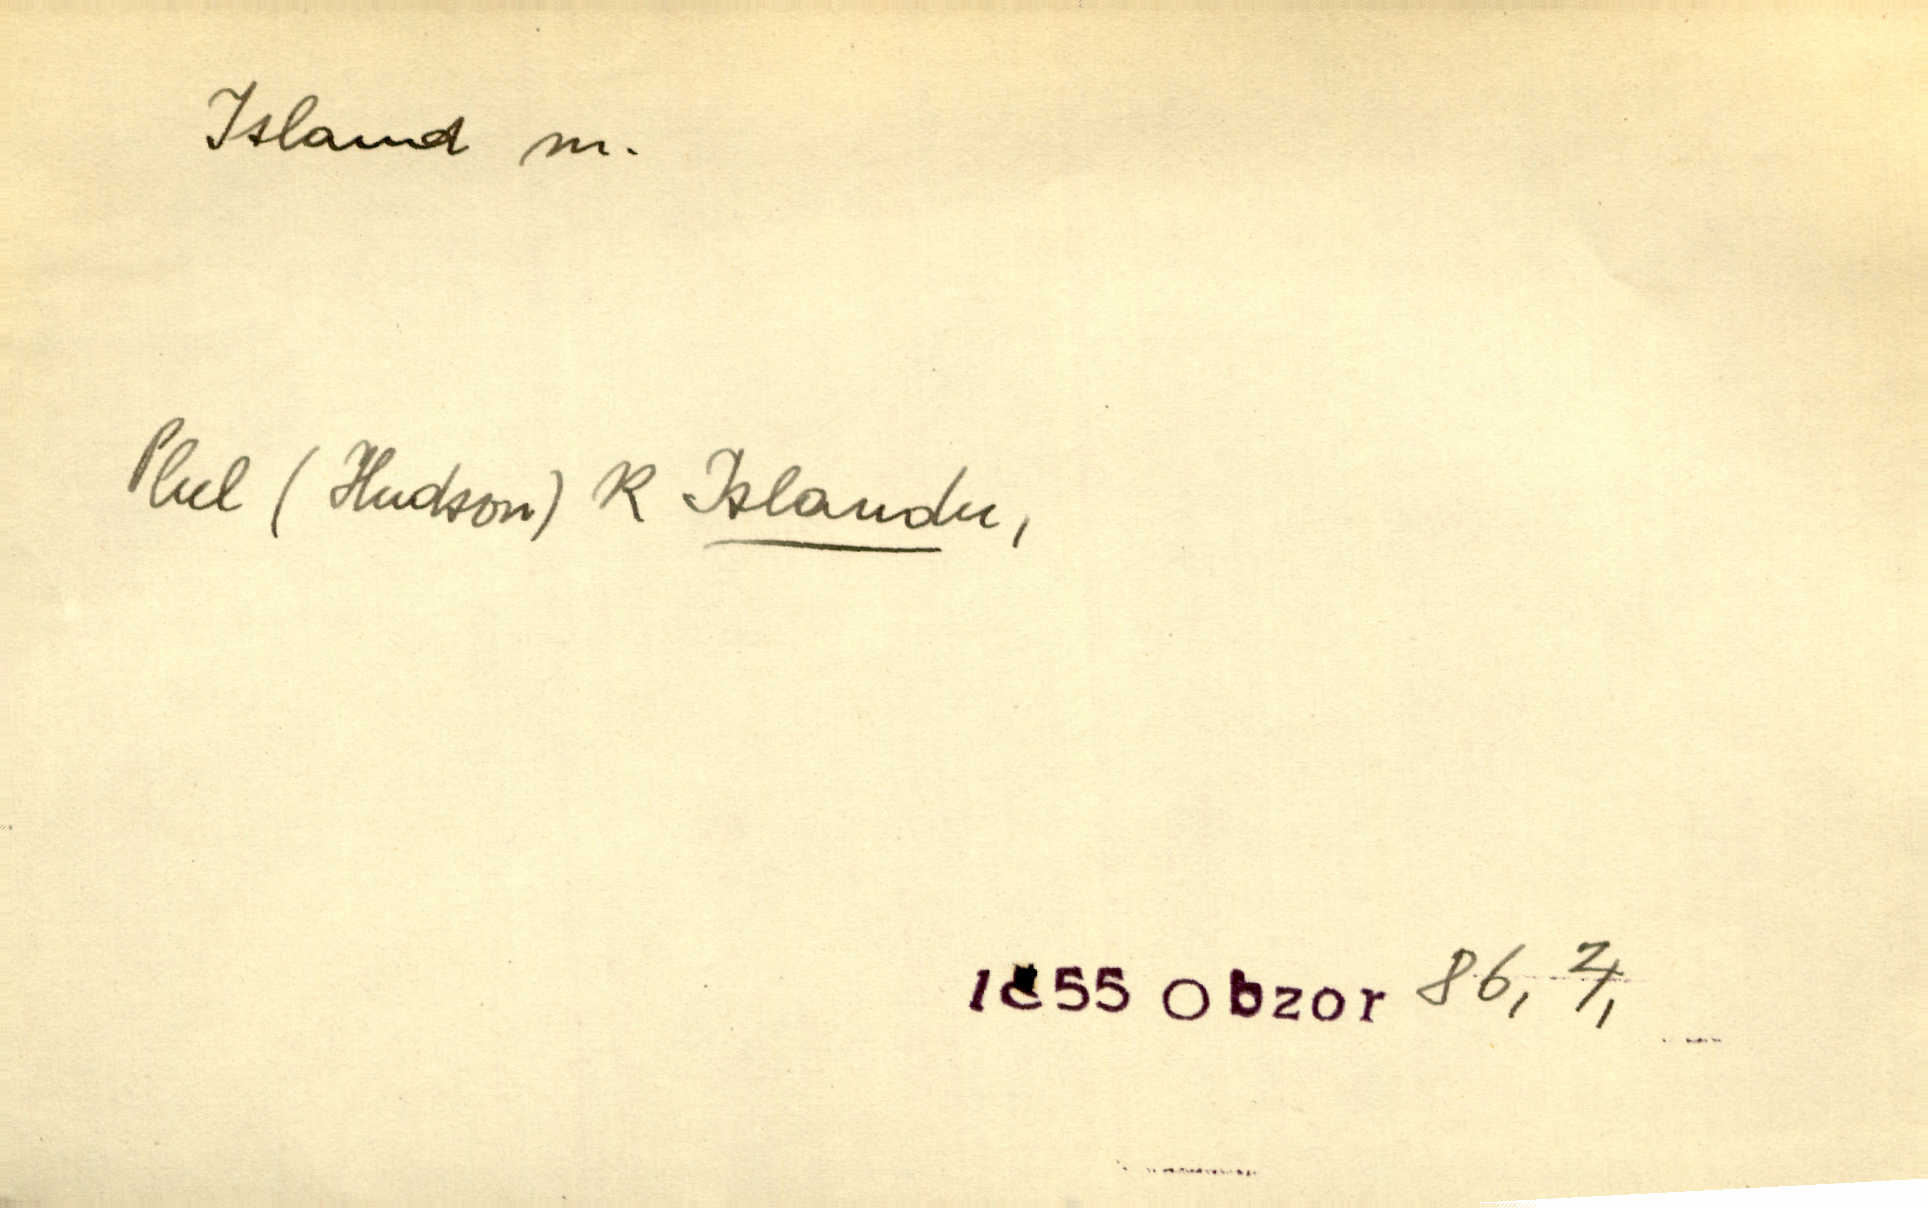 Island m.
Plul (Hudson) K Islandu,
1855 Obzor 86, 2/,